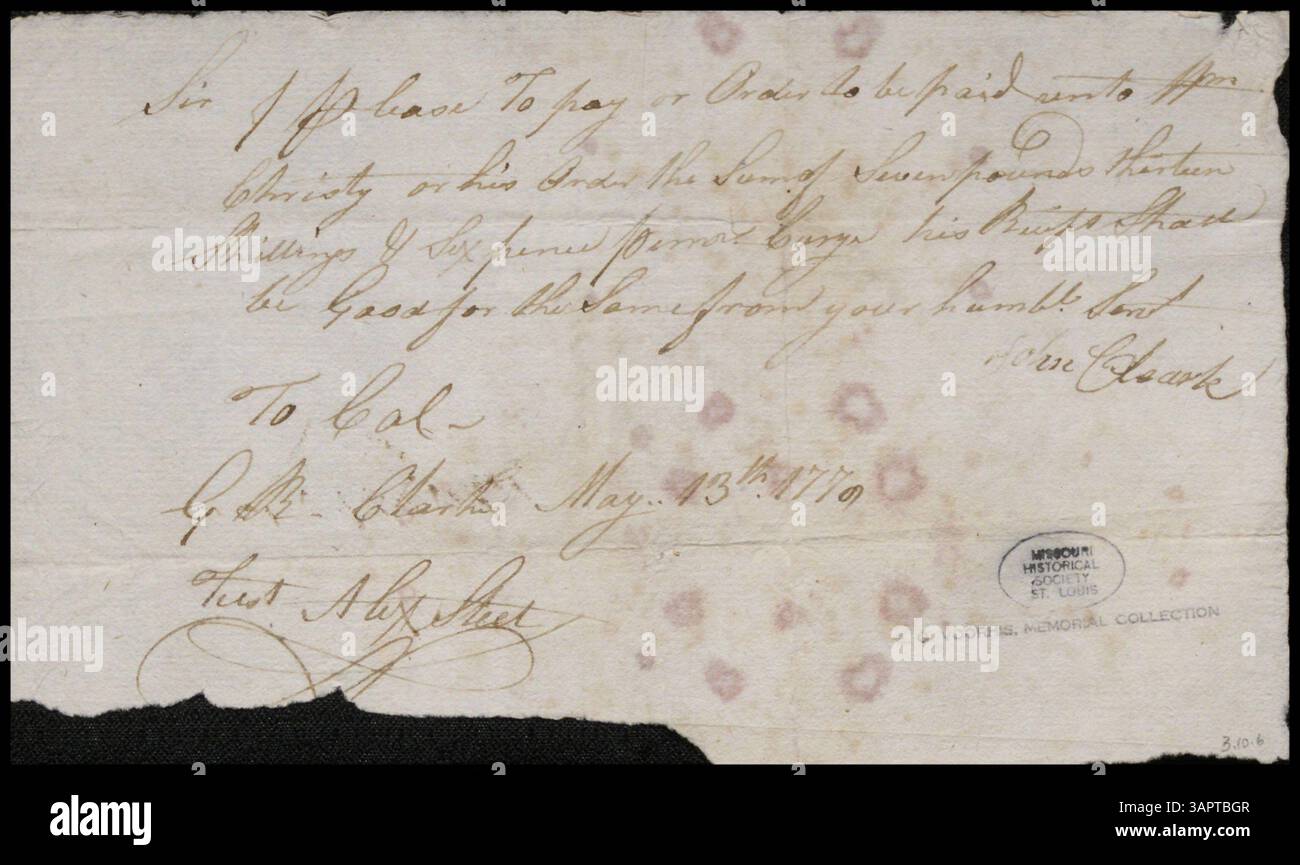 Sir / Please To pay or Order to be paid unto Wm.
Christy or his Order the Sum of Seven pounds thirteen
Shillings & Six pence his Shall
be Good for the Same from your humble. Servt
John Cleark
To Col
G R Clark May 13th. 1779
Test Alex Steel
MISSOURI
HISTORICAL
SOCIETY
ST. LOUIS
MEMORIAL COLLECTION
3.10.6
alamy
alamy
Image ID: 3APTBGR
www.alamy.com